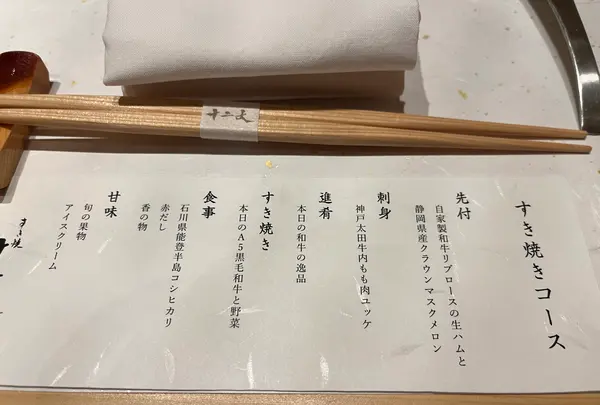 すき焼きコース
先付
自家製和牛リブロースの生ハムと
静岡県産クラウンマスクメロン
刺身
神戸太田牛内もも肉ユッケ
進肴
本日の和牛の逸品
すき焼き
本日のA5黒毛和牛と野菜
食事
石川県能登半島コシヒカリ
赤だし
香の物
甘味
旬の果物
アイスクリーム
すき焼
十二文